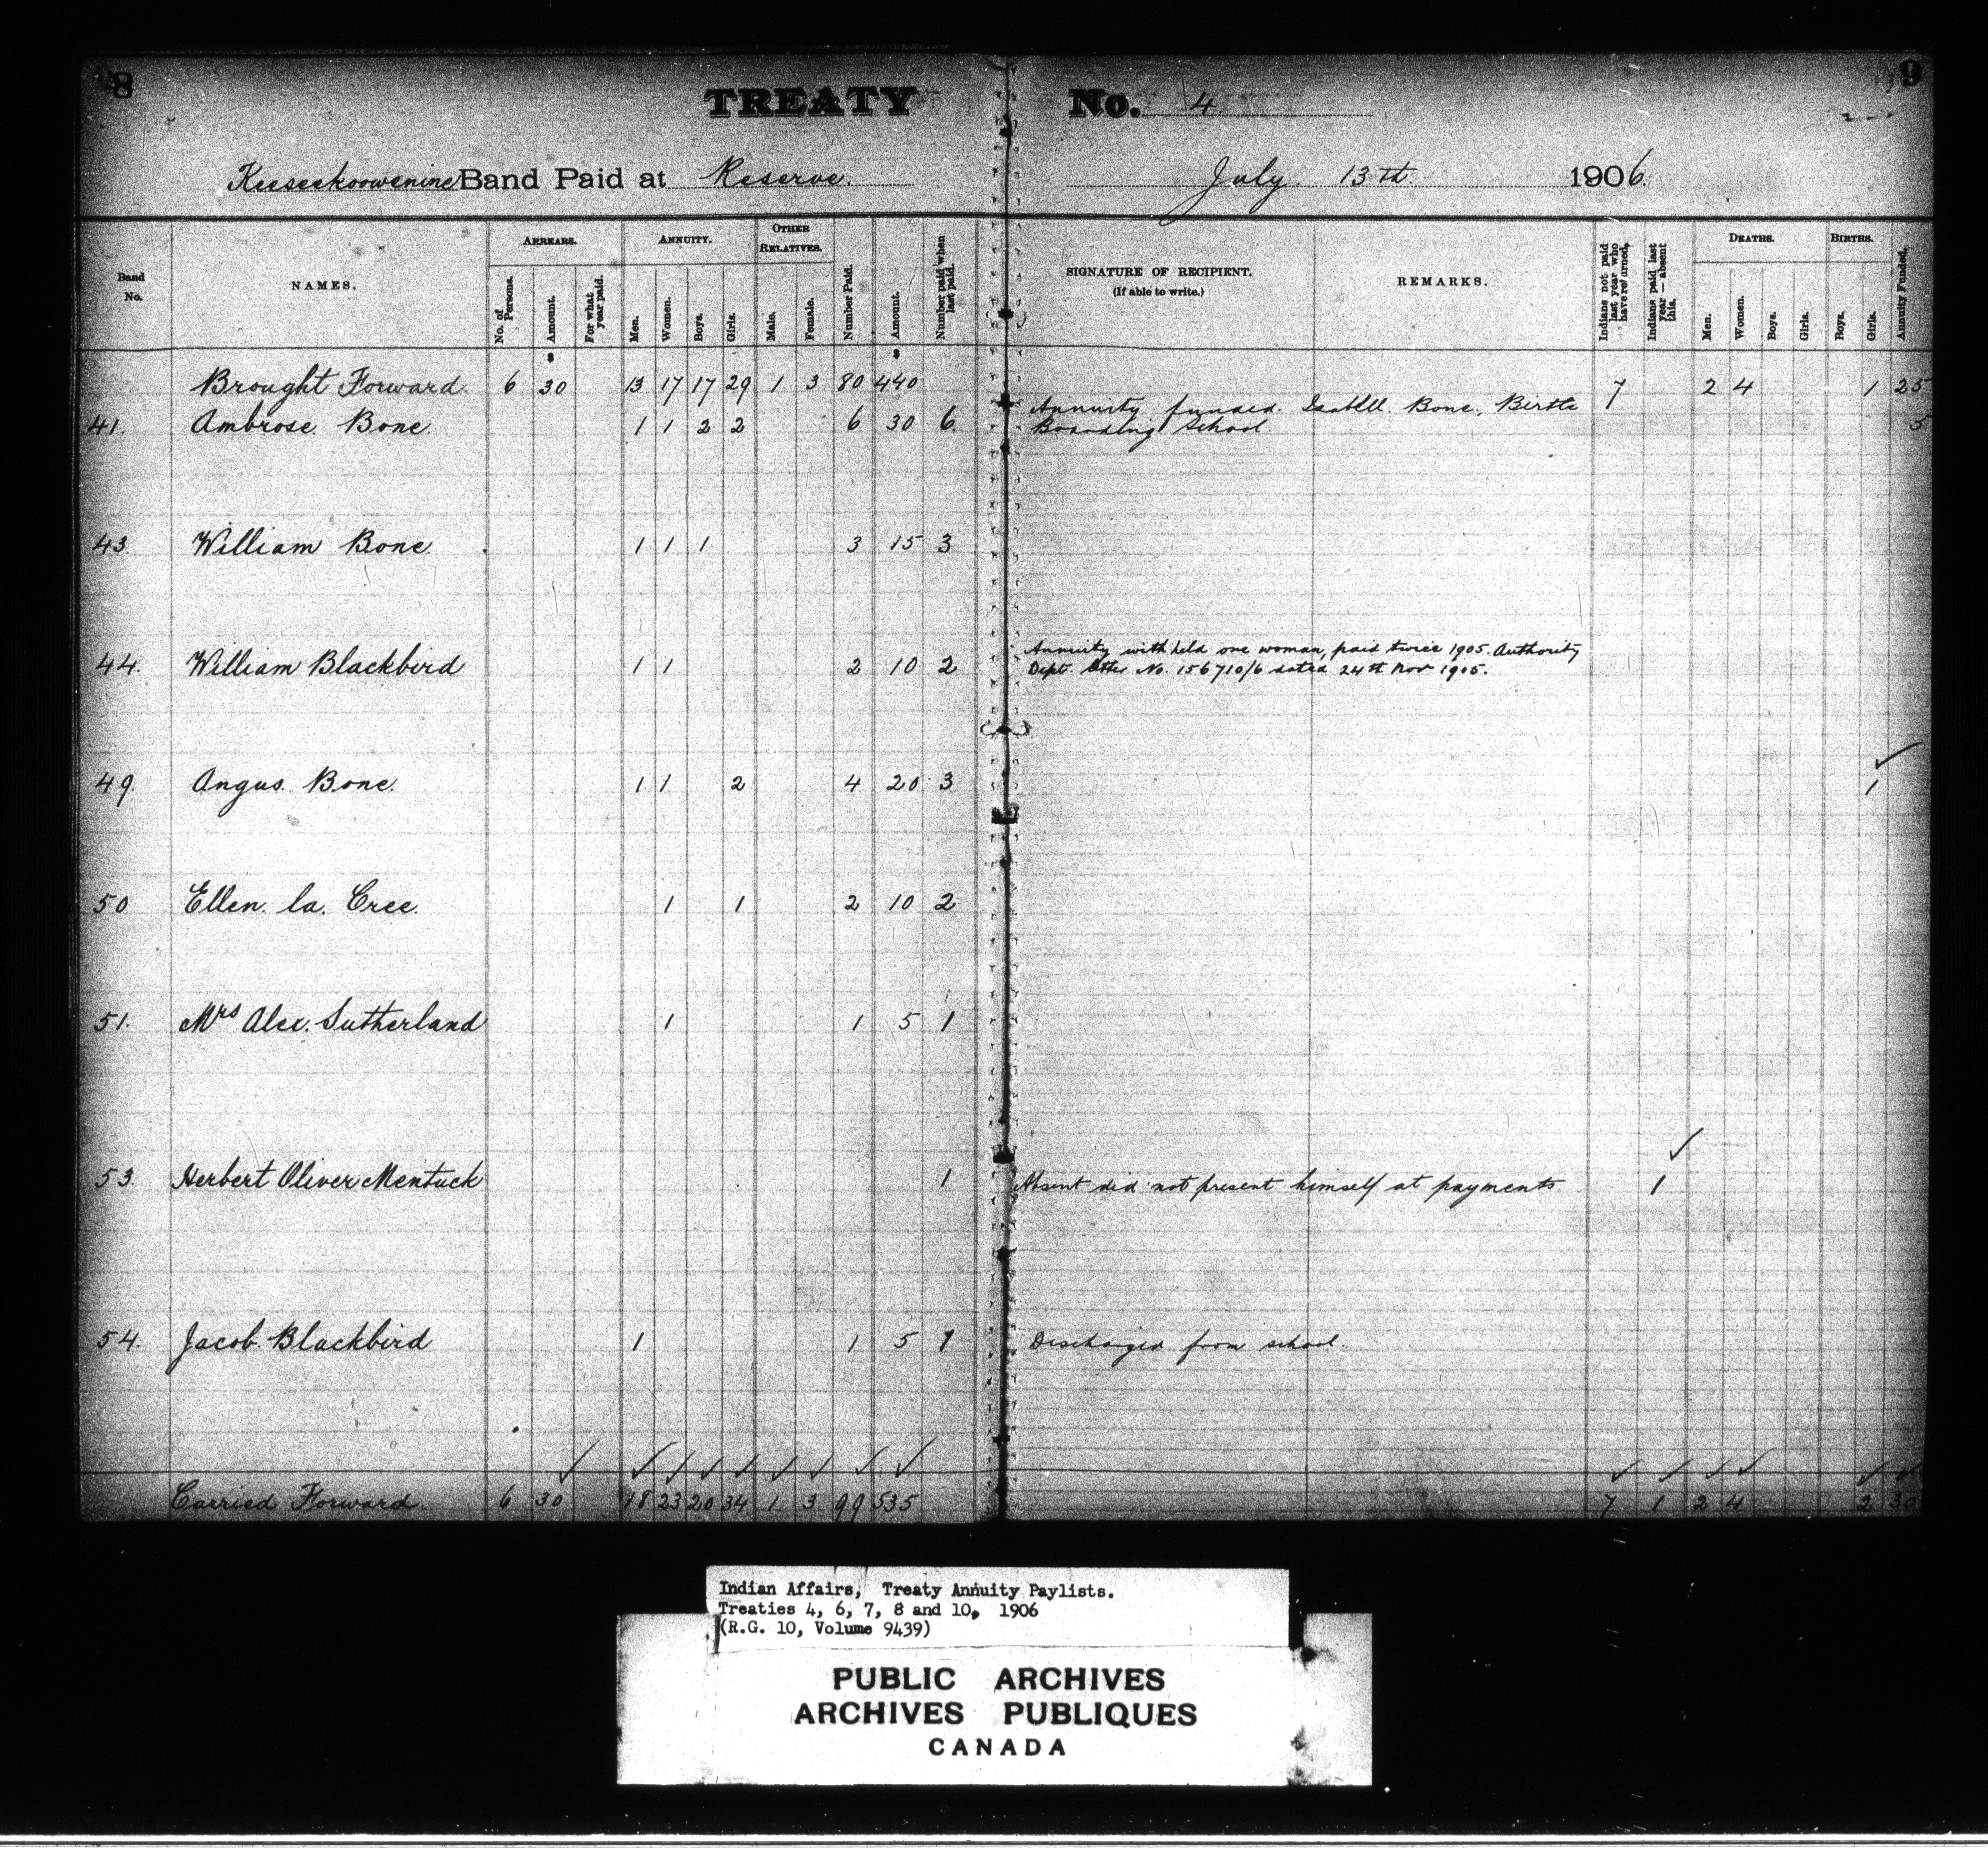 8
TREATY No. 4
9
Keeseekoowenine Band Paid at Reserve. July 13th 1906.
Band No.
NAMES.
ARREARS.
No. of Persons.
Amount.
For what year paid.
ANNUITY.
Men.
Women.
Boys.
Girls.
OTHER RELATIVES.
Male.
Female.
Number Paid.
Amount.
Number paid when last paid.
SIGNATURE OF RECIPIENT.
(If able to write.)
REMARKS.
Indians not paid last year who have returned.
Indians paid last year — absent this.
DEATHS.
Men.
Women.
Boys.
Girls.
BIRTHS.
Boys.
Girls.
Annuity Funded.
Brought Forward. 6 30 13 17 17 29 1 3 80 440 7 2 4 1 25
41. Ambrose Bone. 1 1 2 2 6 30 6 Annuity funded Isabell Bone, Birtle
Boarding School 5
43. William Bone 1 1 1 3 15 3
44. William Blackbird 1 1 2 10 2 Annuity withheld one woman, paid twice 1905. Authority
Dept. letter No. 156710/6 dated 24th Nov 1905.
49. Angus Bone. 1 1 2 4 20 3 1
50 Ellen la Cree. 1 1 2 10 2
51. Mrs Alex. Sutherland 1 1 5 1
53. Herbert Oliver Mentuck 1 Absent did not present himself at payments 1
54. Jacob Blackbird 1 1 5 1 Discharged from school.
Carried Forward 6 30 18 23 20 34 1 3 99 535 7 1 2 4 2 30
Indian Affairs, Treaty Annuity Paylists.
Treaties 4, 6, 7, 8 and 10, 1906
(R.G. 10, Volume 9439)
PUBLIC ARCHIVES
ARCHIVES PUBLIQUES
CANADA